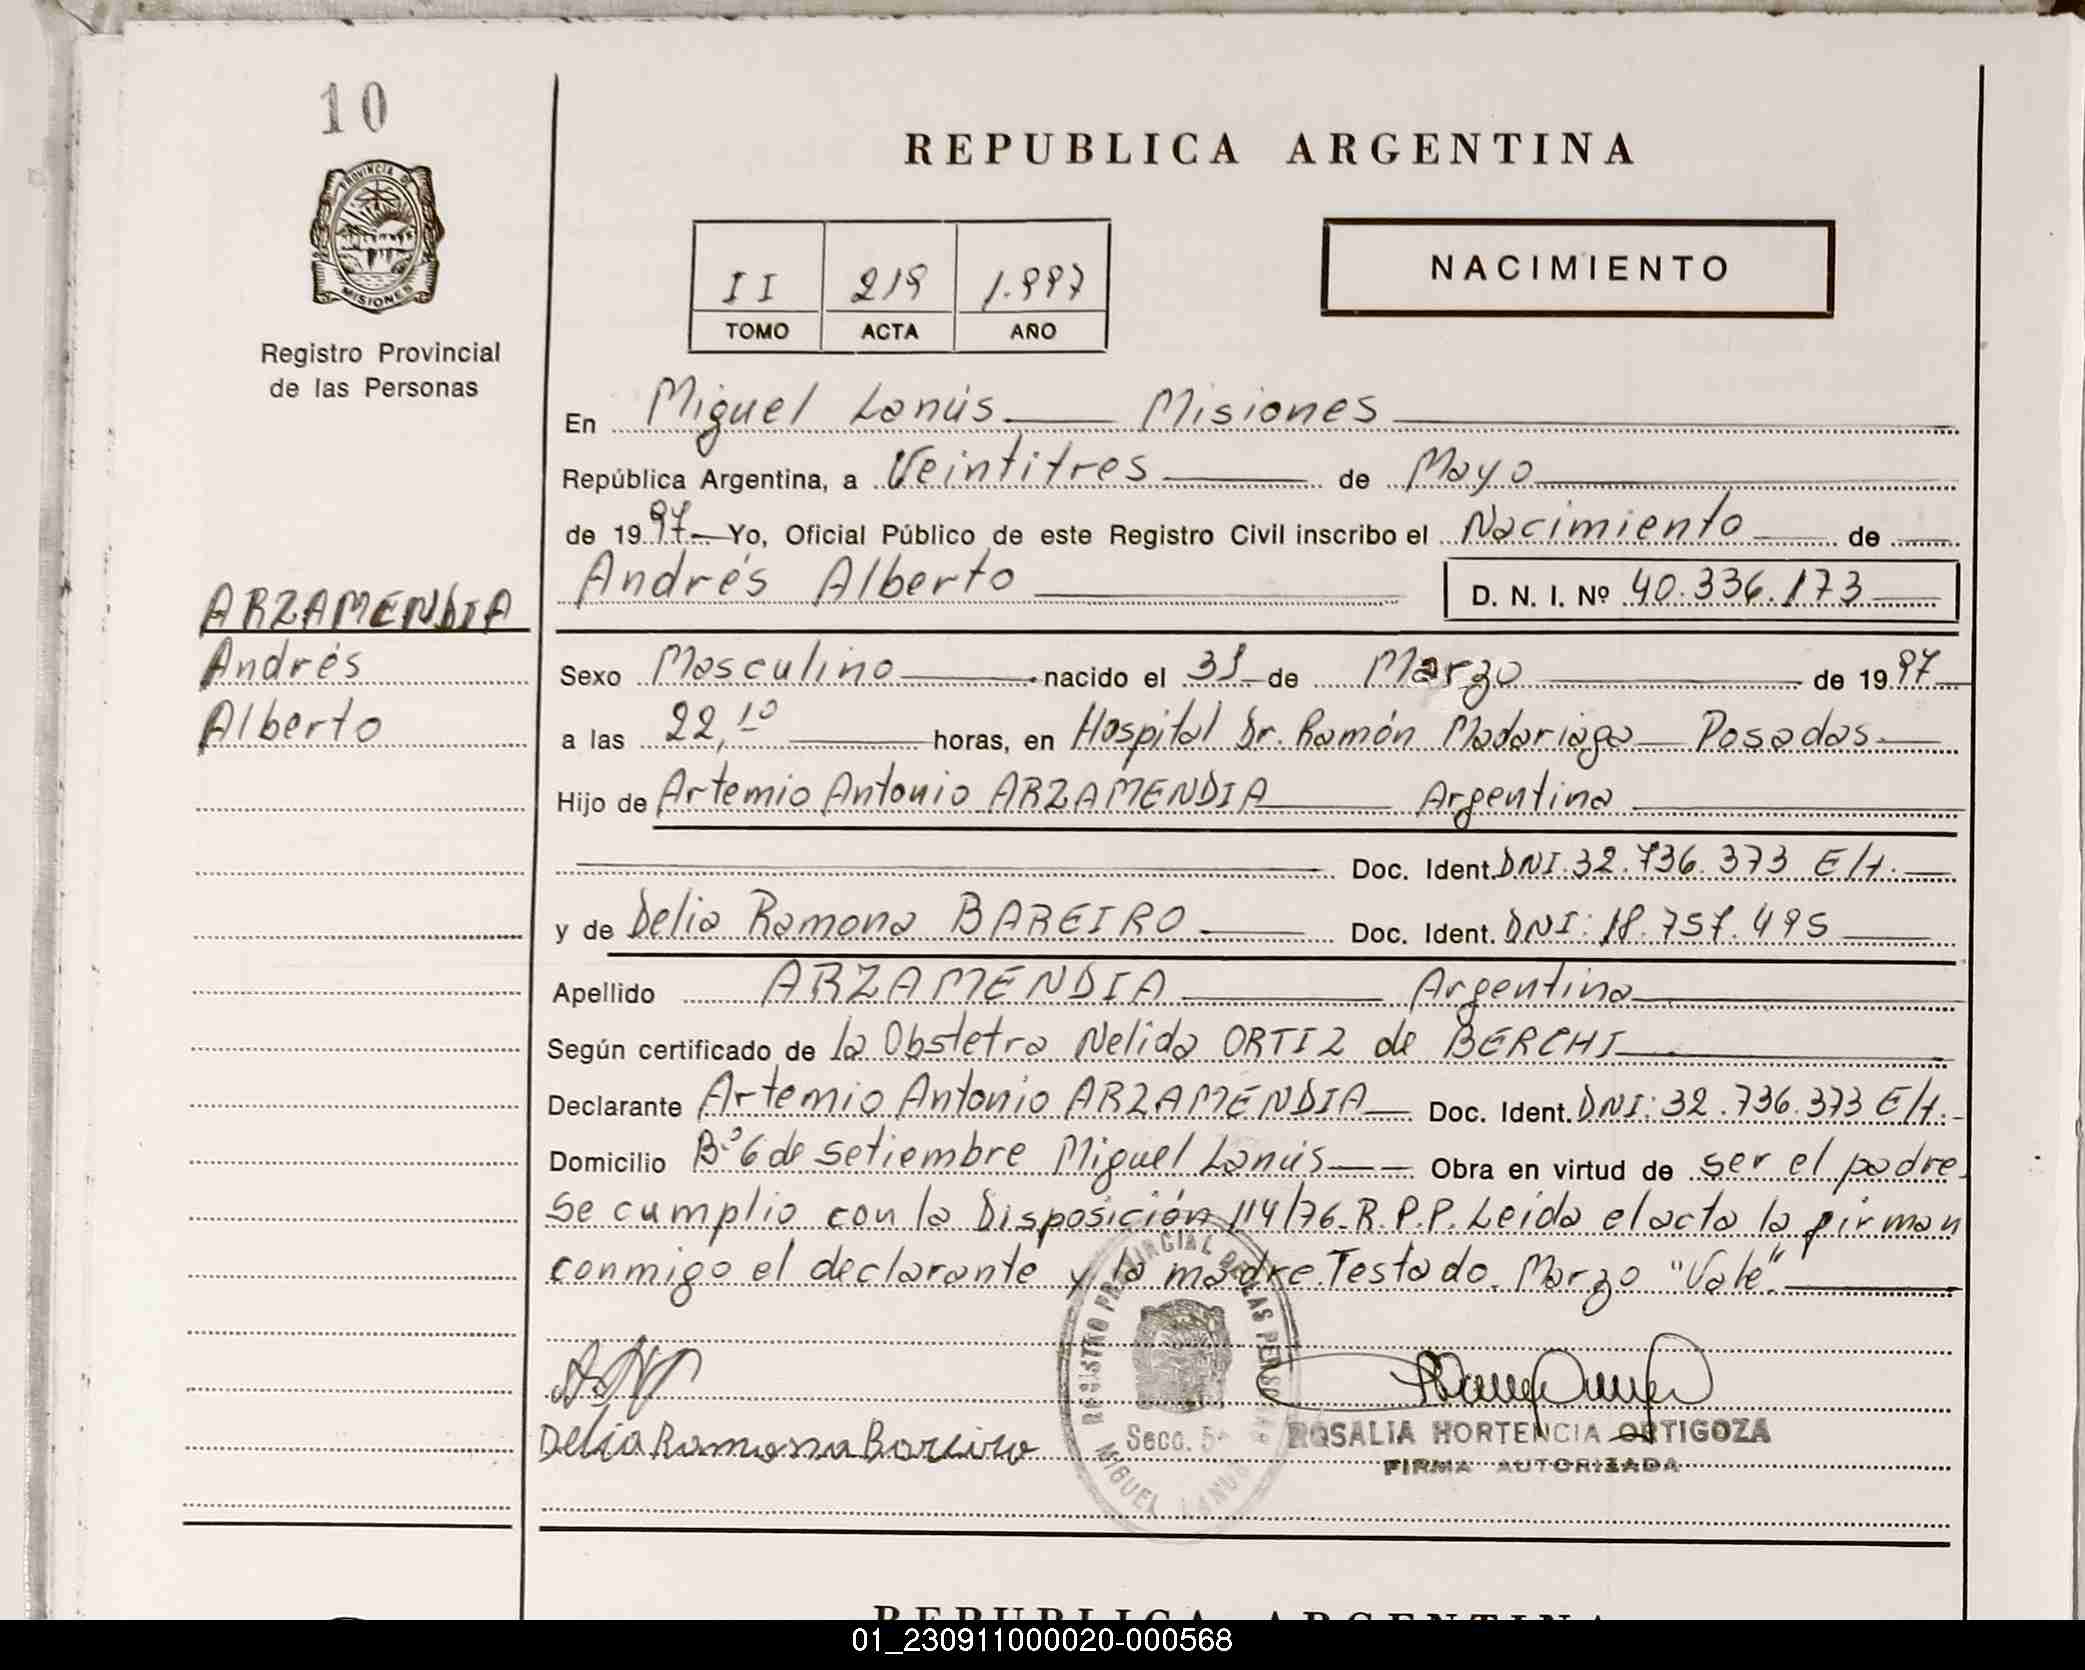 10
PROVINCIA DE
MISIONES
Registro Provincial
de las Personas
REPUBLICA ARGENTINA
NACIMIENTO
II 219 1.997
TOMO ACTA AÑO
En Miguel Lanús Misiones
República Argentina, a Veintitres de Mayo
de 1997 Yo, Oficial Público de este Registro Civil inscribo el Nacimiento de
Andrés Alberto D. N. I. Nº 40.336.173
ARZAMENDIA
Andrés
Alberto
Sexo Masculino nacido el 31 de Marzo de 1997
a las 22,10 horas, en Hospital Dr. Ramón Madariaga Posadas
Hijo de Artemio Antonio ARZAMENDIA Argentina
Doc. Ident. DNI. 32.736.373 E/t.
y de Delia Ramona BAREIRO Doc. Ident. DNI: 18.757.495
Apellido ARZAMENDIA Argentina
Según certificado de la Obstetra Nelida ORTIZ de BERCHI
Declarante Artemio Antonio ARZAMENDIA Doc. Ident. DNI: 32.736.373 E/t.
Domicilio Bº 6 de Setiembre Miguel Lanús Obra en virtud de ser el padre
Se cumplio con la Disposición 114/76. R.P.P. Leída el acta la firman
conmigo el declarante y la madre. Testado. Marzo "Vale".
Delia Ramona Bareiro
REGISTRO PROVINCIAL DE LAS PERSONAS
Secc. 5
MIGUEL LANUS
ROSALIA HORTENCIA ORTIGOZA
FIRMA AUTORIZADA
REPUBLICA ARGENTINA
01_230911000020-000568